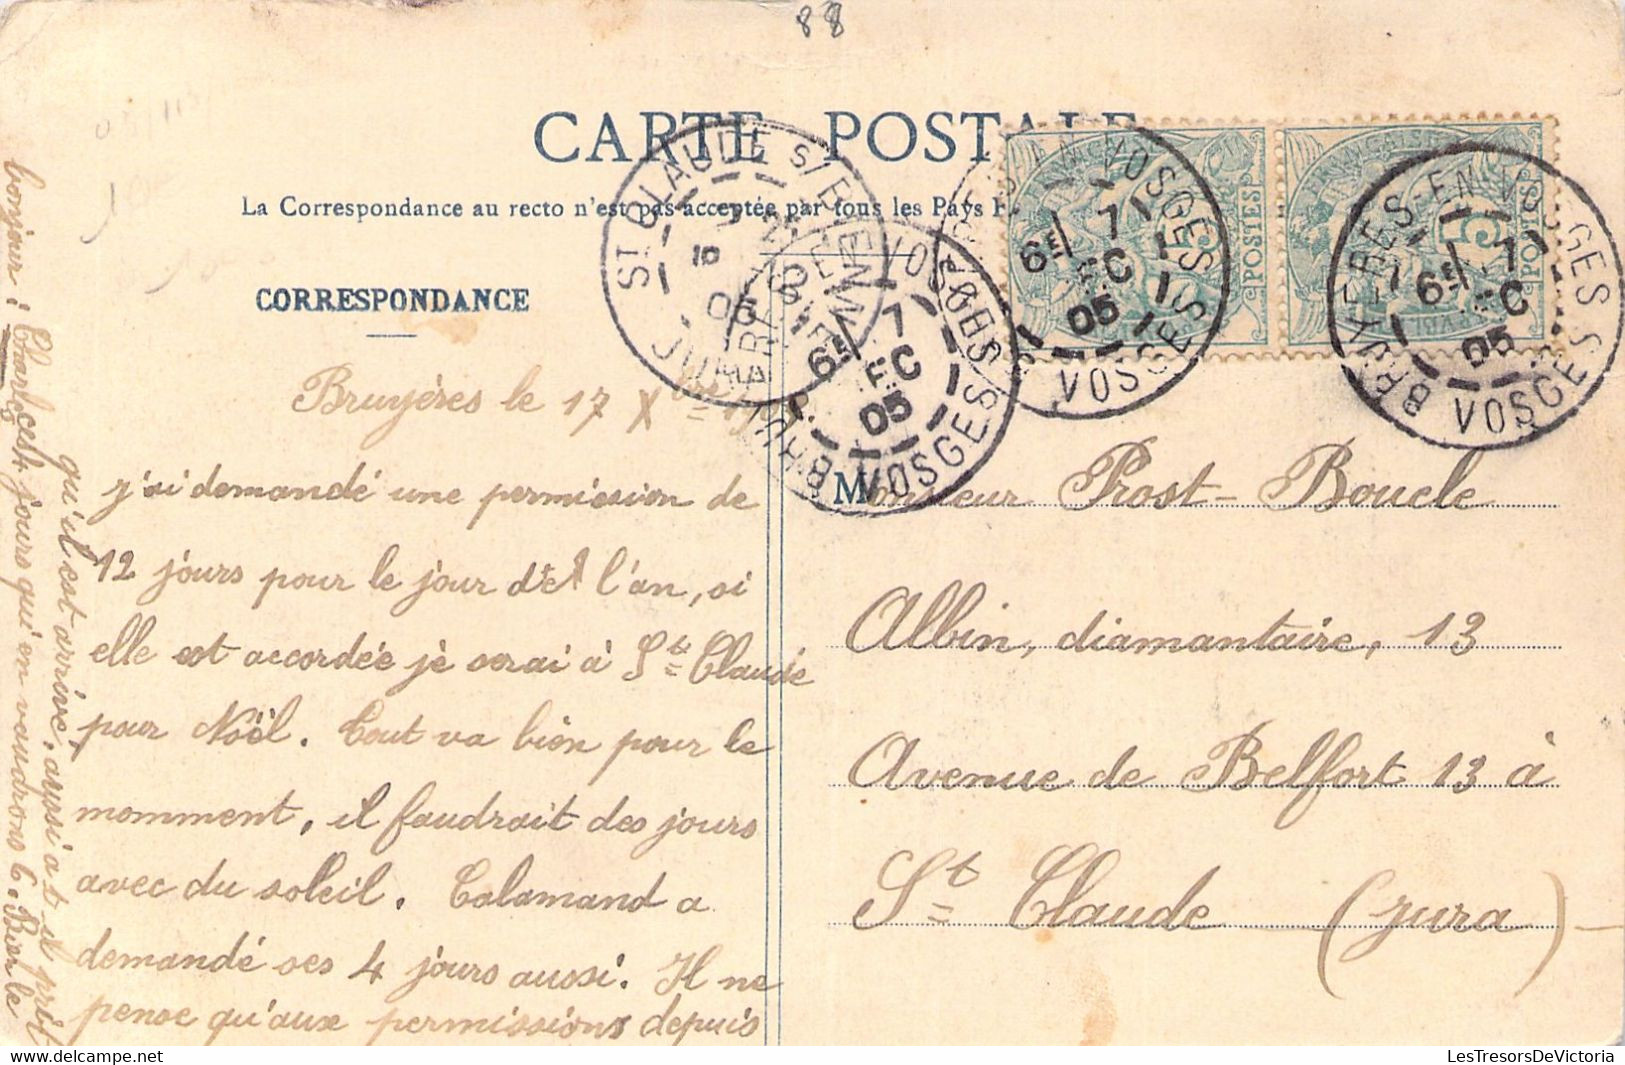 88
CARTE POSTALE
La Correspondance au recto n'est pas acceptée par tous les Pays
CORRESPONDANCE
ST CLAUDE S/
JURA
10
05
BRUYERES-EN-VOSGES
VOSGES
6E
7
EC
05
BRUYERES-EN-VOSGES
VOSGES
6E
7
EC
05
BRUYERES-EN-VOSGES
VOSGES
6E
7
EC
05
POSTES
POSTES
5
Bruyéres le 17 Xbre
j'ai demandé une permission de
12 jours pour le jour de l'an, si
elle est accordée je serai à St Claude
pour Noël. Tout va bien pour le
momment, il faudrait des jours
avec du soleil. Calamand a
demandé ses 4 jours aussi. Il ne
pense qu'aux permissions depuis
qu'il est arrivé, aussi a t il prit
jours qui en vaudrons 6. Bien le
bonjour : Charles
Monsieur Prost-Boucle
Albin, diamantaire, 13
Avenue de Belfort 13 à
St Claude (Jura)
LesTresorsDeVictoria